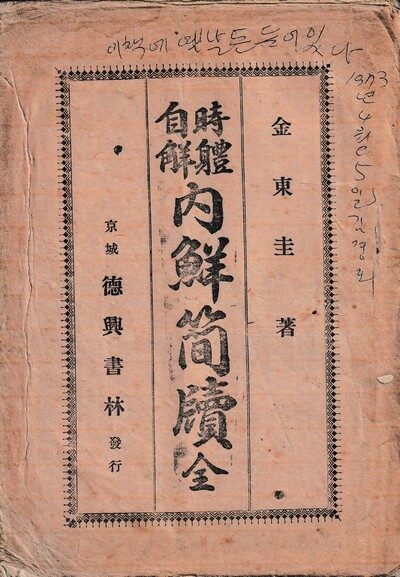 이책에 옛날돈들어있다
1973년 4월 5일 김경회
金東圭 著
時體
自解
內鮮簡牘 全
京城 德興書林 發行